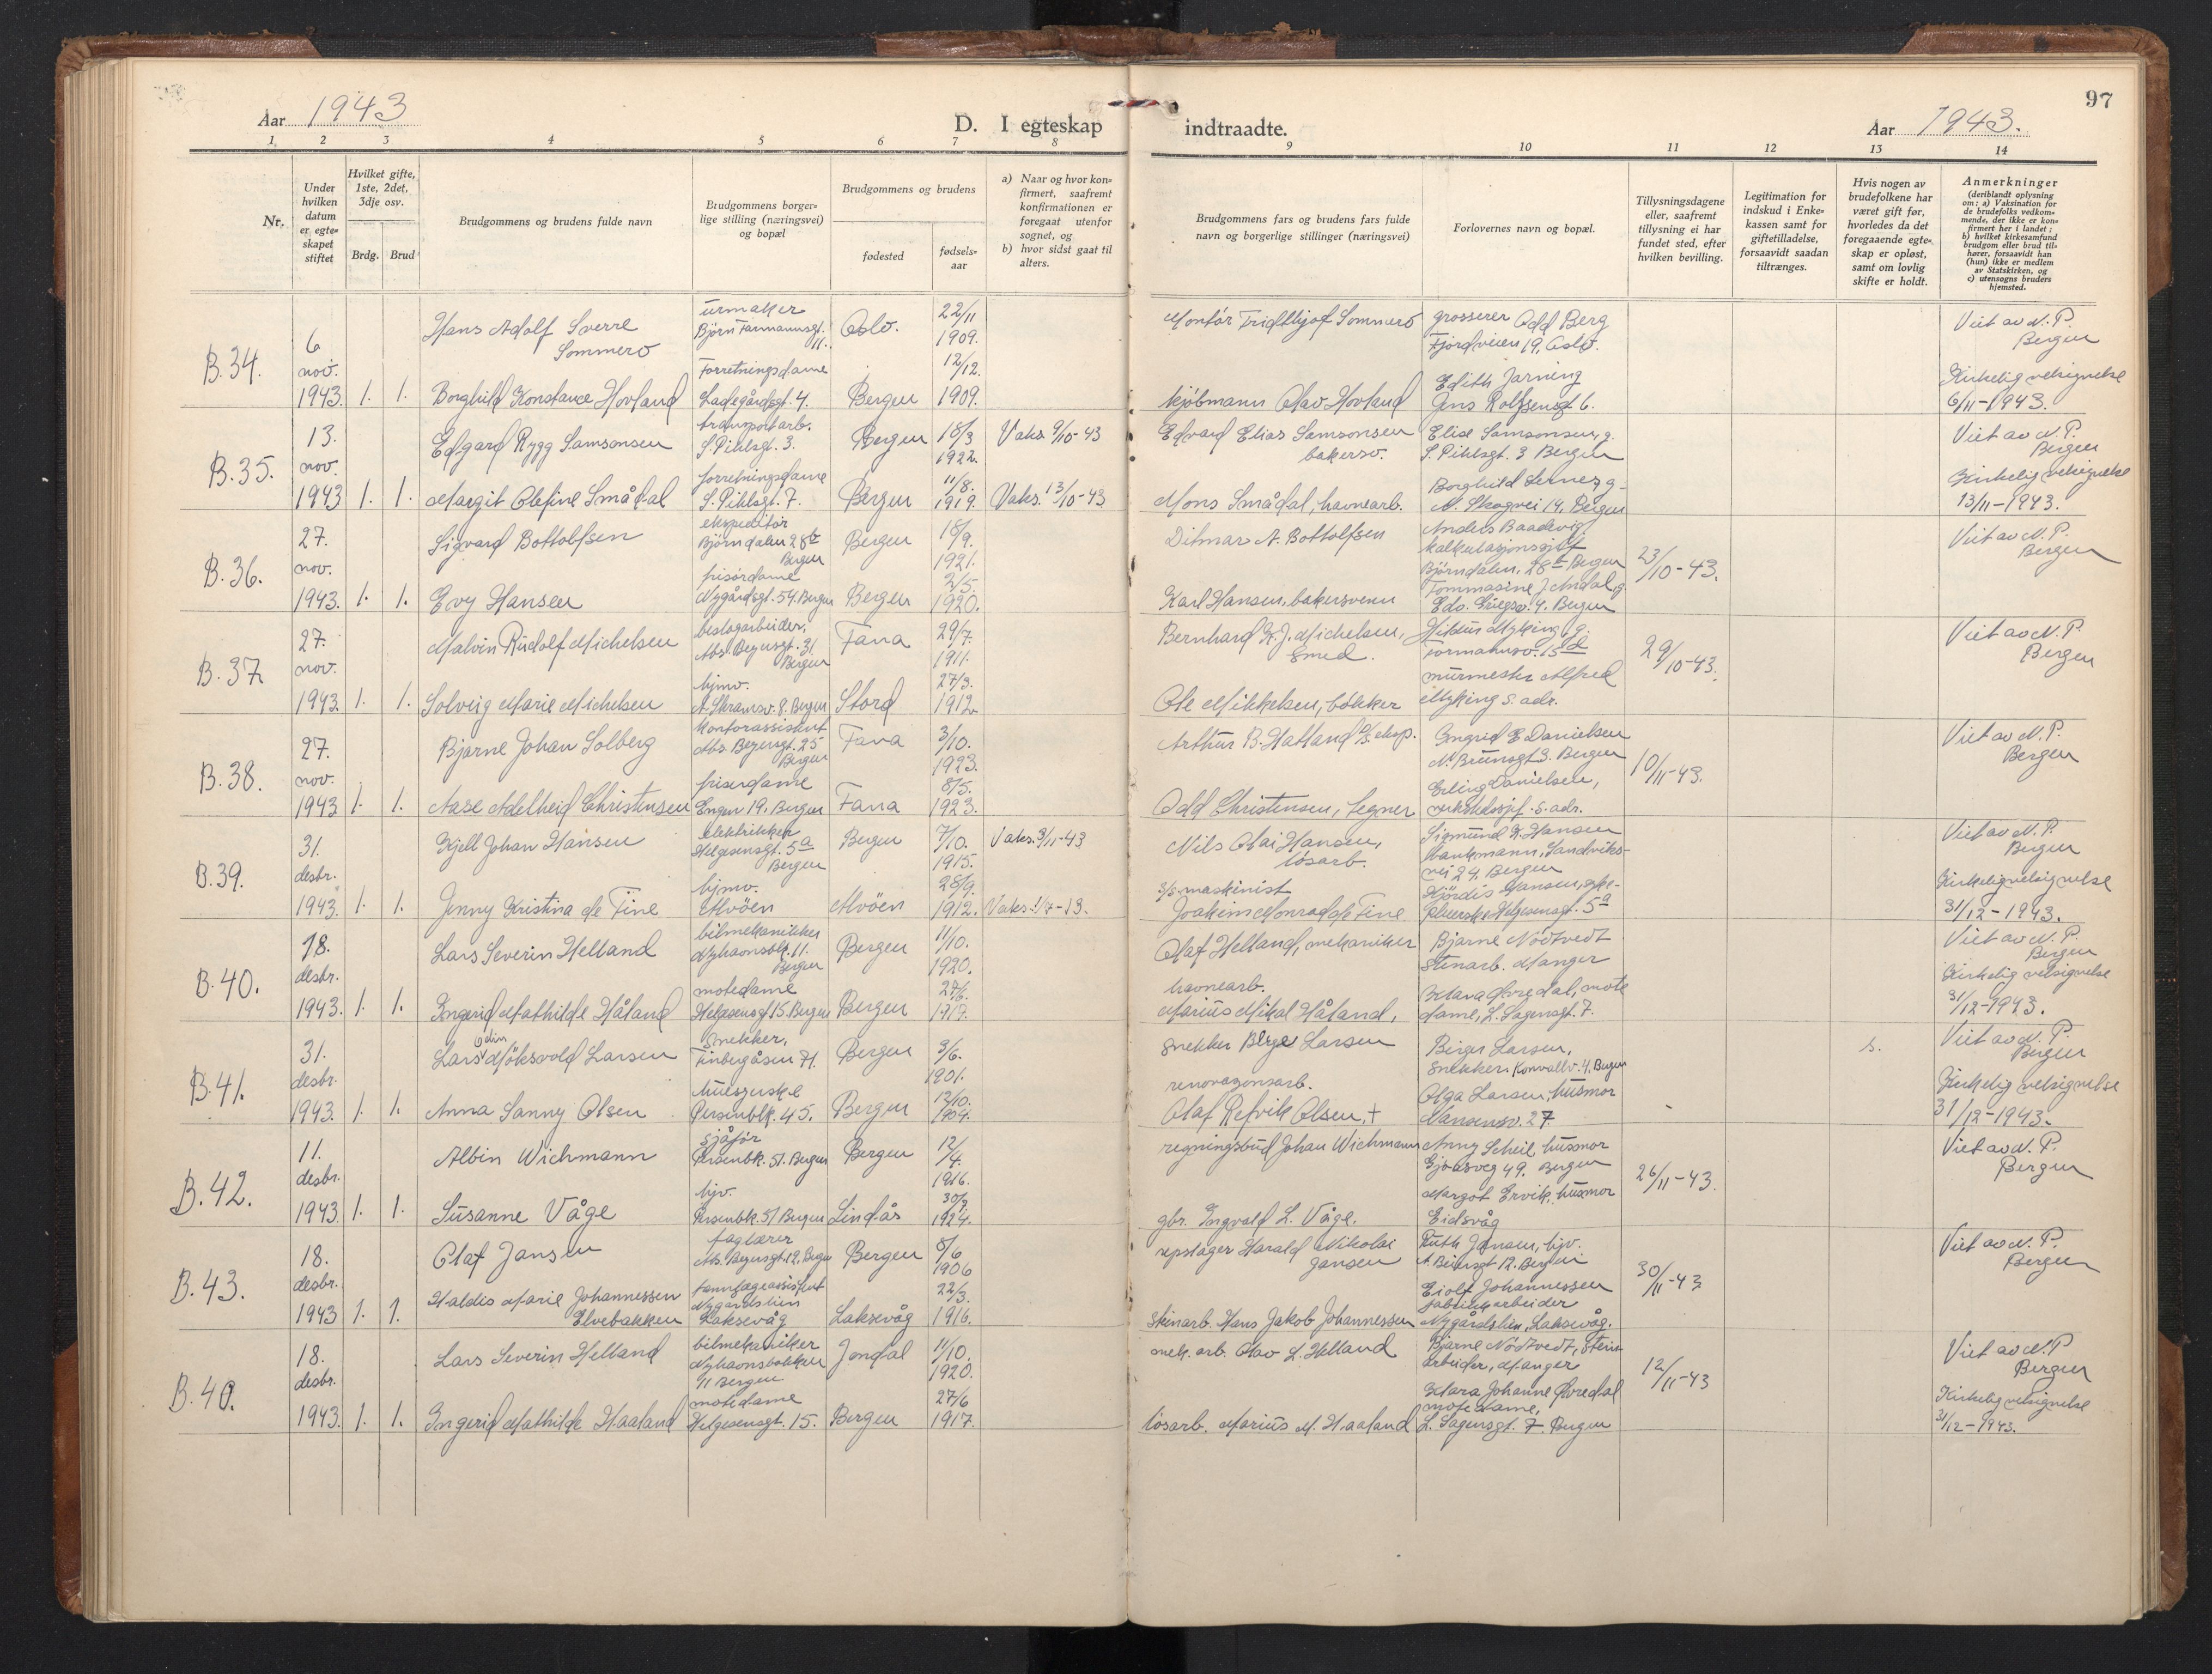 Aar 1943
D. I egteskap
1 2 3 4 5 6 7 8
Nr.
Under hvilken datum er egteskapet stiftet
Hvilket gifte, 1ste, 2det, 3dje osv.
Brdg. Brud
Brudgommens og brudens fulde navn
Brudgommens borgerlige stilling (næringsvei) og bopæl
Brudgommens og brudens
fødested
fødselsaar
a) Naar og hvor konfirmert, saafremt konfirmationen er foregaat utenfor sognet, og
b) hvor sidst gaat til alters.
B.34.
6 nov. 1943. 1. 1.
Hans Adolf Sverre Sommero
urmaker Bjørn Farmannsgt. 11.
Oslo. 22/11 1909.
Borghild Konstance Hovland
Forretningsdame Ladegårdsgt. 4.
Bergen 12/12. 1909.
B.35.
13. nov. 1943 1. 1.
Edgard Rygg Samsonsen
transportarb. S. Pihlsgt. 3.
Bergen 18/3 1922. Vaks. 9/10-43
Margit Olefine Smådal
forretningsdame S. Pihlsgt. 7.
Bergen 11/8. 1919. Vaks. 13/10-43
B.36.
27. nov. 1943. 1. 1.
Sigvard Bottolfsen
ekspeditør Björndalen 28 Bergen
Bergen 18/9. 1921.
Evy Hansen
frisørdame Nygårdsgt. 54. Bergen
Bergen 2/5. 1920.
B.37
27. nov. 1943 1. 1.
Malvin Rudolf Michelsen
beslagarbeider, Abs. Beyersgt. 31. Bergen
Fana 29/7. 1911.
Solveig Marie Michelsen
hjmv. A. Skramsv. 8. Bergen
Stord 27/3. 1912.
B.38.
27. nov. 1943 1. 1.
Bjarne Johan Solberg
Kontorassistent Abs. Beyersgt. 25 Bergen
Fana 3/10. 1923.
Aase Adelheid Christensen
friserdame Engen 19. Bergen
Fana 8/5. 1923.
B.39.
31. desbr. 1943. 1. 1.
Kjell Johan Hansen
elektrikker Helgesensgt. 5a Bergen
Bergen 7/10. 1915. Vaks. 3/11-43
Jenny Kristina de Fine
hjmv. Alvöen
Alvöen 28/9. 1912.
B.40.
18. desbr. 1943. 1. 1.
Lars Severin Helland
bilmekanikker Nyhavnsbk. 11. Bergen
Bergen 11/10. 1920.
Ingerid Mathilde Håland
motedame Helgesensgt 15. Bergen
Bergen 27/6.
B.41.
31. desbr. 1943. 1. 1.
Lars Odin Möksvold Larsen
Snekker, Finbergåsen 71.
Bergen 3/6. 1901.
Anna Sanny Olsen
Persenblk. 45.
Bergen 12/10. 1904.
B.42.
11. desbr. 1943 1. 1.
Albin Wichmann
Sjåfør Persenbk. 51. Bergen
Bergen 12/4. 1916.
Susanne Våge
hjv. Persenbk. 51 Bergen
Lindås 30/9 1924.
B.43.
18. desbr. 1943 1. 1.
Olaf Jansen
faglærer Abs. Beyersgt. 12. Bergen
Bergen 8/6 1906
Haldis Marie Johannessen Elvebakken
tannlægeassistent Nygårdslien Laksevåg
Laksevåg 22/3. 1916.
B.40.
18. desbr. 1943. 1. 1.
Lars Severin Helland
bilmekaniker Nyhavnsbakken 11 Bergen
Jondal 11/10. 1920.
Ingerid Mathilde Haaland
motedame Helgesensgt. 15.
Bergen 27/6 1917.
97
indtraadte.
Aar 1943.
9 10 11 12 13 14
Brudgommens fars og brudens fars fulde navn og borgerlige stillinger (næringsvei)
Forlovernes navn og bopæl.
Tillysningsdagene eller, saafremt tillysning ei har fundet sted, efter hvilken bevilling.
Legitimation for indskud i Enkekassen samt for giftetilladelse, forsaavidt saadan tiltrænges.
Hvis nogen av brudefolkene har været gift før, hvorledes da det foregaaende egteskap er opløst, samt om lovlig skifte er holdt.
Anmerkninger
(deriblandt oplysning om: a) Vaksination for de brudefolks vedkommende, der ikke er konfirmert her i landet; b) hvilket kirkesamfund brudgom eller brud tilhører, forsaavidt han (hun) ikke er medlem av Statskirken, og c) utensogns bruders hjemsted.
Montør Fridthjof Sommero
grosserer Odd Berg Fjordveien 19, Oslo.
Viet av N. P. Bergen
kjöbmann Olav Hovland
Edith Jarning Jens Rolfsensgt 6.
Kirkelig velsignelse 6/11-1943.
Edvard Elias Samsonsen bakersv.
Elise Samsonsen, g. S. Pihlsgt. 3 Bergen
Viet av N. P. Bergen
Mons Smådal, havnearb.
Borghild g. N. Skogvei 14, Bergen
Kirkelig velsignelse 13/11-1943.
Ditmar A. Bottolfsen
Anders Baadsvig kalkulasjonssjef Björndalen, 28 Bergen
23/10-43.
Viet av N. P. Bergen
Karl Hansen, bakersvenn
Tommasine J. g. Edv. Griegsv. 4. Bergen
Bernhard K. J. Michelsen, Smed.
Hildur Myking, g. Formannsv. 15d
29/10-43.
Viet av N. P. Bergen
Ole Mikkelsen, bökker
murmester Alfred Myking s. adr.
Arthur B. Hatland
Ingrid E Danielsen N. Brunsgt 3. Bergen
10/11-43.
Viet av N. P. Bergen
Odd Christensen, tegner
Erling Danielsen, s. adr.
Nils Olai Hansen, lösarb.
Sigmund K. Hansen Sandviksvei 24. Bergen
Viet av N. P. Bergen
s/s. maskinist Joakim Monrad de Fine
Hjördis Hansen, Helgesensgt. 5a
Kirkelig velsignelse 31/12-1943.
Olaf Helland, mekaniker
Bjarne Nödtvedt stenarb. Manger
Viet av N. P. Bergen
havnearb. Marius Mikal Håland,
Øvredal, mote dame, L. Sagensgt. 7.
Kirkelig velsignelse 31/12-1943.
Snekker Larsen
Birger Larsen, Snekker Konvallv. 4. Bergen
Viet av N. P. Bergen
renovasjonsarb. Olaf Refvik Olsen, +
Olga Larsen, husmor Nansensv. 27
Kirkelig velsignelse 31/12-1943.
regningsbud Johan Wichmann
Anny Scheil husmor Gjøasveg 49. Bergen
26/11-43.
Viet av N. P. Bergen
gbr. Ingvald L. Våge.
Margot Ervik, husmor Eidsvåg
repslager Harald Nikolai Jansen
Ruth Jansen, hjv. Bergen
30/11-43
Viet av N. P. Bergen
Stenarb. Hans Jakob Johannessen
Eiolf Johannessen fabrikkarbeider Nygårdslien, Laksevåg.
mek. arb. Olav L. Helland
Bjarne Nödtvedt, Stenarbeider, Manger
12/11-43
Viet av N. P Bergen
lösarb. Marius M. Haaland
Klara Johanne Øvredal motedame, L. Sagensgt. 7 Bergen
Kirkelig velsignelse 31/12-1943.